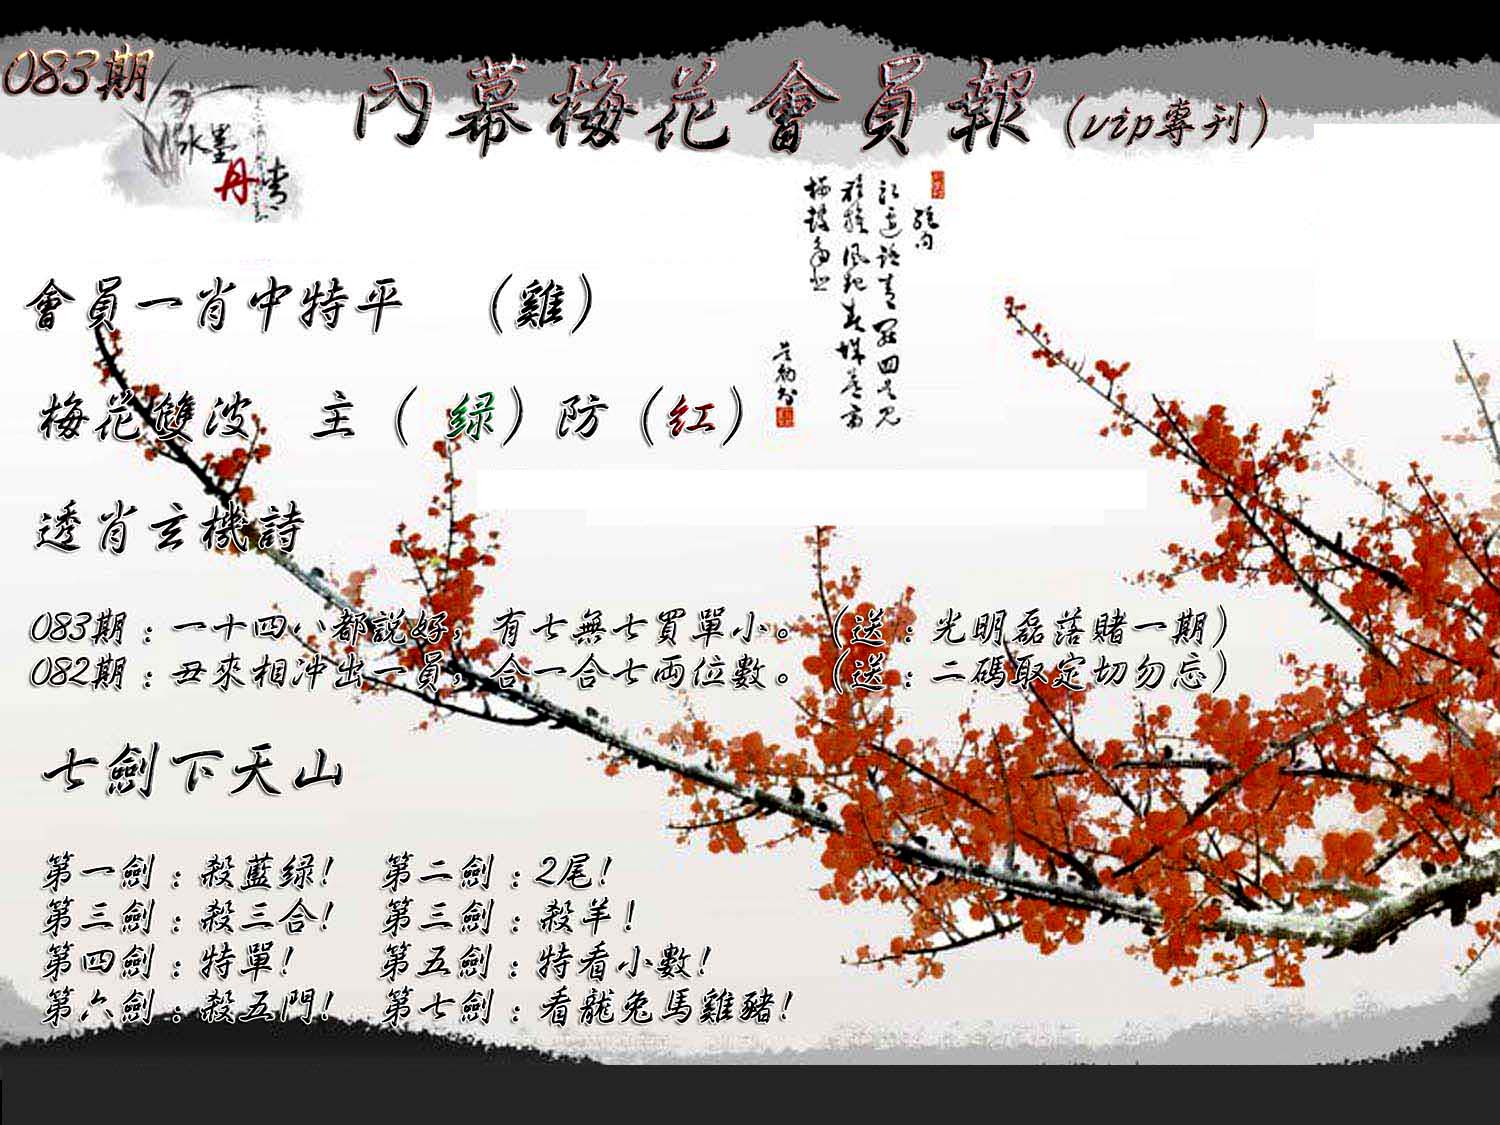 083期
內幕梅花會員報（vip專刊）
水墨
丹青
會員一肖中特平　（雞）
梅花雙波　主（绿）防（红）
透肖玄機詩
083期：一十四八都説好，有七無七買單小。（送：光明磊落賭一期）
082期：丑來相冲出一員，合一合七兩位數。（送：二碼取定切勿忘）
七劍下天山
第一劍：殺藍绿！　第二劍：2尾！
第三劍：殺三合！　第三劍：殺羊！
第四劍：特單！　第五劍：特看小數！
第六劍：殺五門！　第七劍：看龍兔馬雞豬！